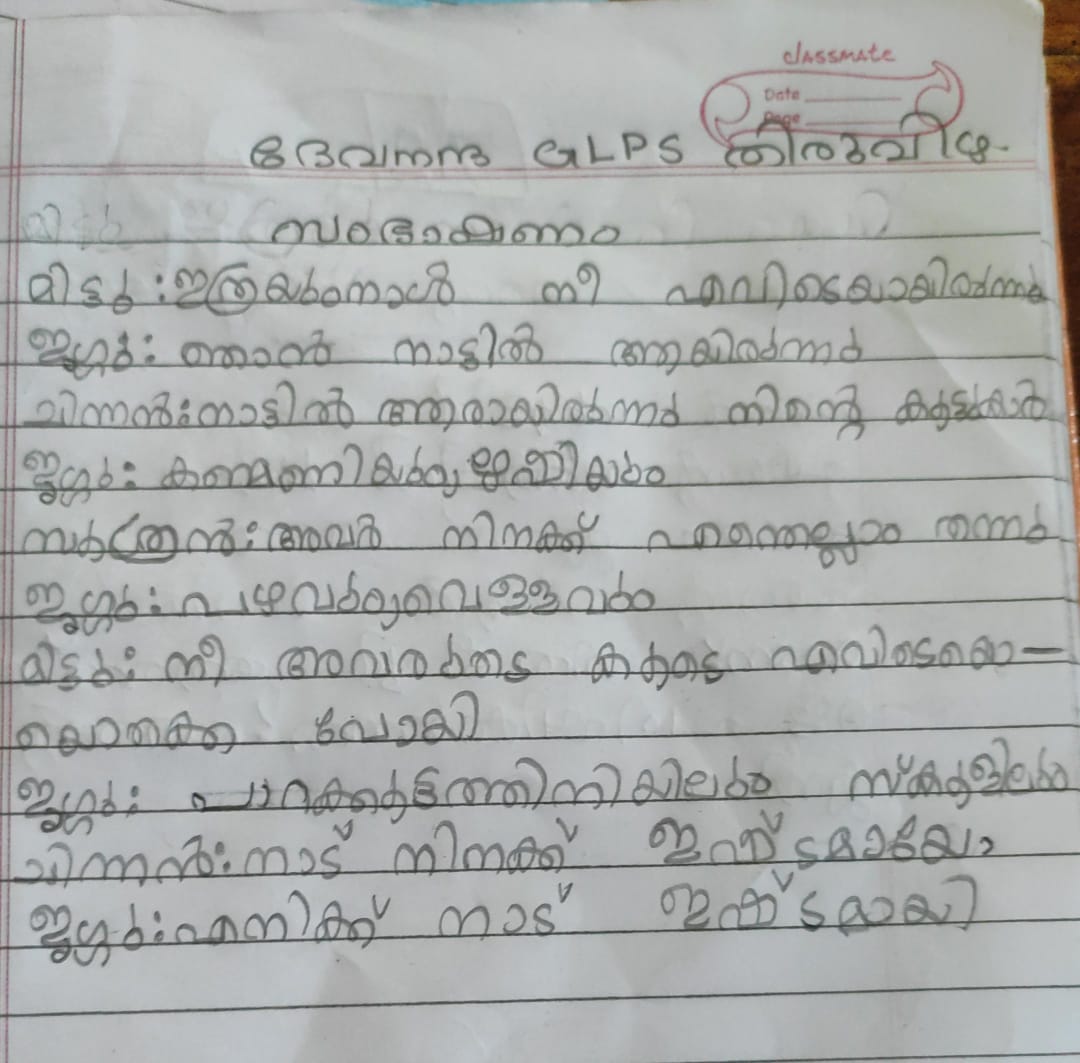 classmate
Date
Page
ദേവനന്ദ GLPS തിരുവിഴ.
സംഭാഷണം
മിട്ടു : ഇത്രയുംനാൾ നീ എവിടെയായിരുന്നു
ജുഗ്രു: ഞാൻ നാട്ടിൽ ആയിരുന്നു
ചിന്നൻ: നാട്ടിൽ ആരായിരുന്നു നിന്റെ കൂട്ടുകാർ
കണ്മണിയും,
അവർ നിനക്ക് എന്തെല്ലാം തന്നു
പഴവും,വെള്ളവും
മിട്ടു: നീ അവരുടെ കൂടെ എവിടെയൊ-
യൊക്കെ പോയി
പാറക്കൂട്ടത്തിനിയിലും സ്കൂളിലും
ചിന്നൻ: നാട് നിനക്ക് ഇഷ്ടമായോ
എനിക്ക് നാട് ഇഷ്ടമായി